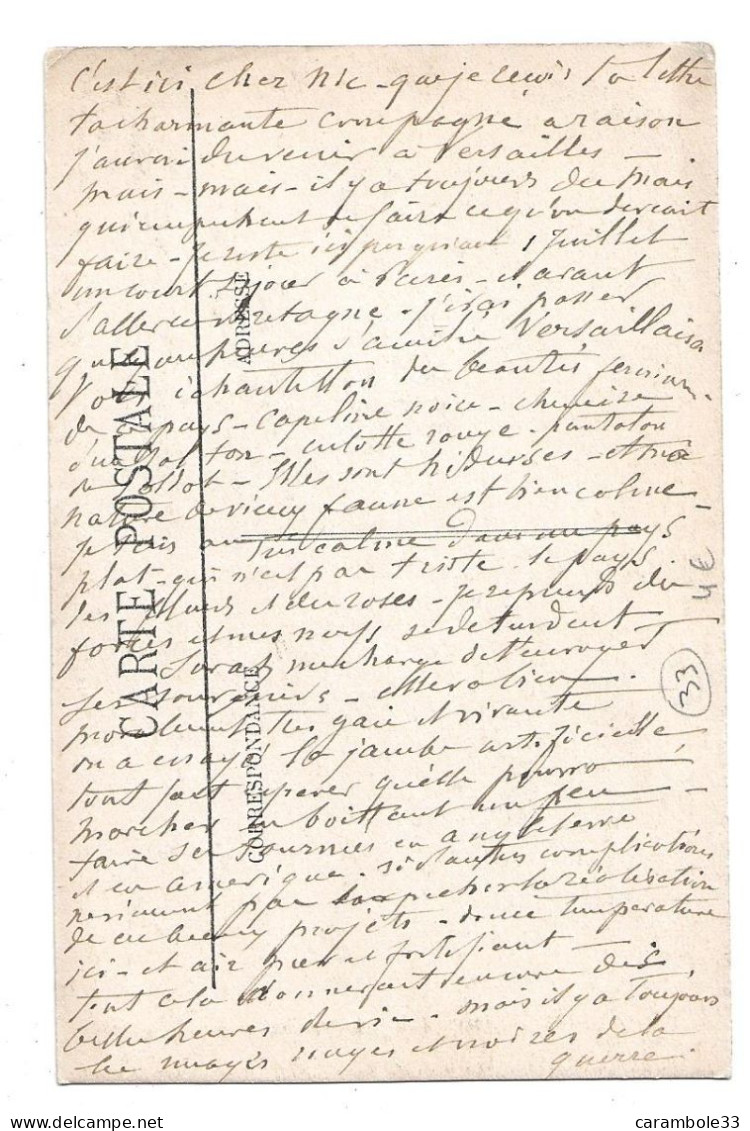 c'est ici cher Nic - que je reçois ta lettre
ta charmante compagne a raison
j'aurai du venir à Versailles -
mais - mais - il y a toujours des mais
qui empêchent de faire ce qu'on devrait
faire - je reste ici jusqu'au 1 Juillet
un court séjour à Paris - et avant
d'aller en Bretagne - j'irai passer
quelques heures d'amitié Versaillaise
échantillon des beautés
du pays - Capeline noire - chemise
culotte rouge - pantalon
- Elles sont hideuses - et ma
nature de vieux faune est bien calme -
je suis au plus calme dans un pays
plat - qui n'est pas triste - le pays
des et des roses - je reprends des
forces et mes nerfs se detendent
Sarah me charge de t'envoyer
ses souvenirs - elle va bien -
moralement très gaie et vivante
on a essayé la jambe artificielle,
tout fait esperer qu'elle pourra
marcher en boittant un peu -
faire ses tournées en angleterre
et en amerique - si d'autres complications
ne viennent pas empecher la réalisation
de ces beaux projets - douce température
ici - et air pur et fortifiant
tout cela donnerait encore des
belles heures de vie - mais il y a toujours
les nuages rouges et noires de la
guerre.
CARTE POSTALE
CORRESPONDANCE
ADRESSE
4€
33
carambole33